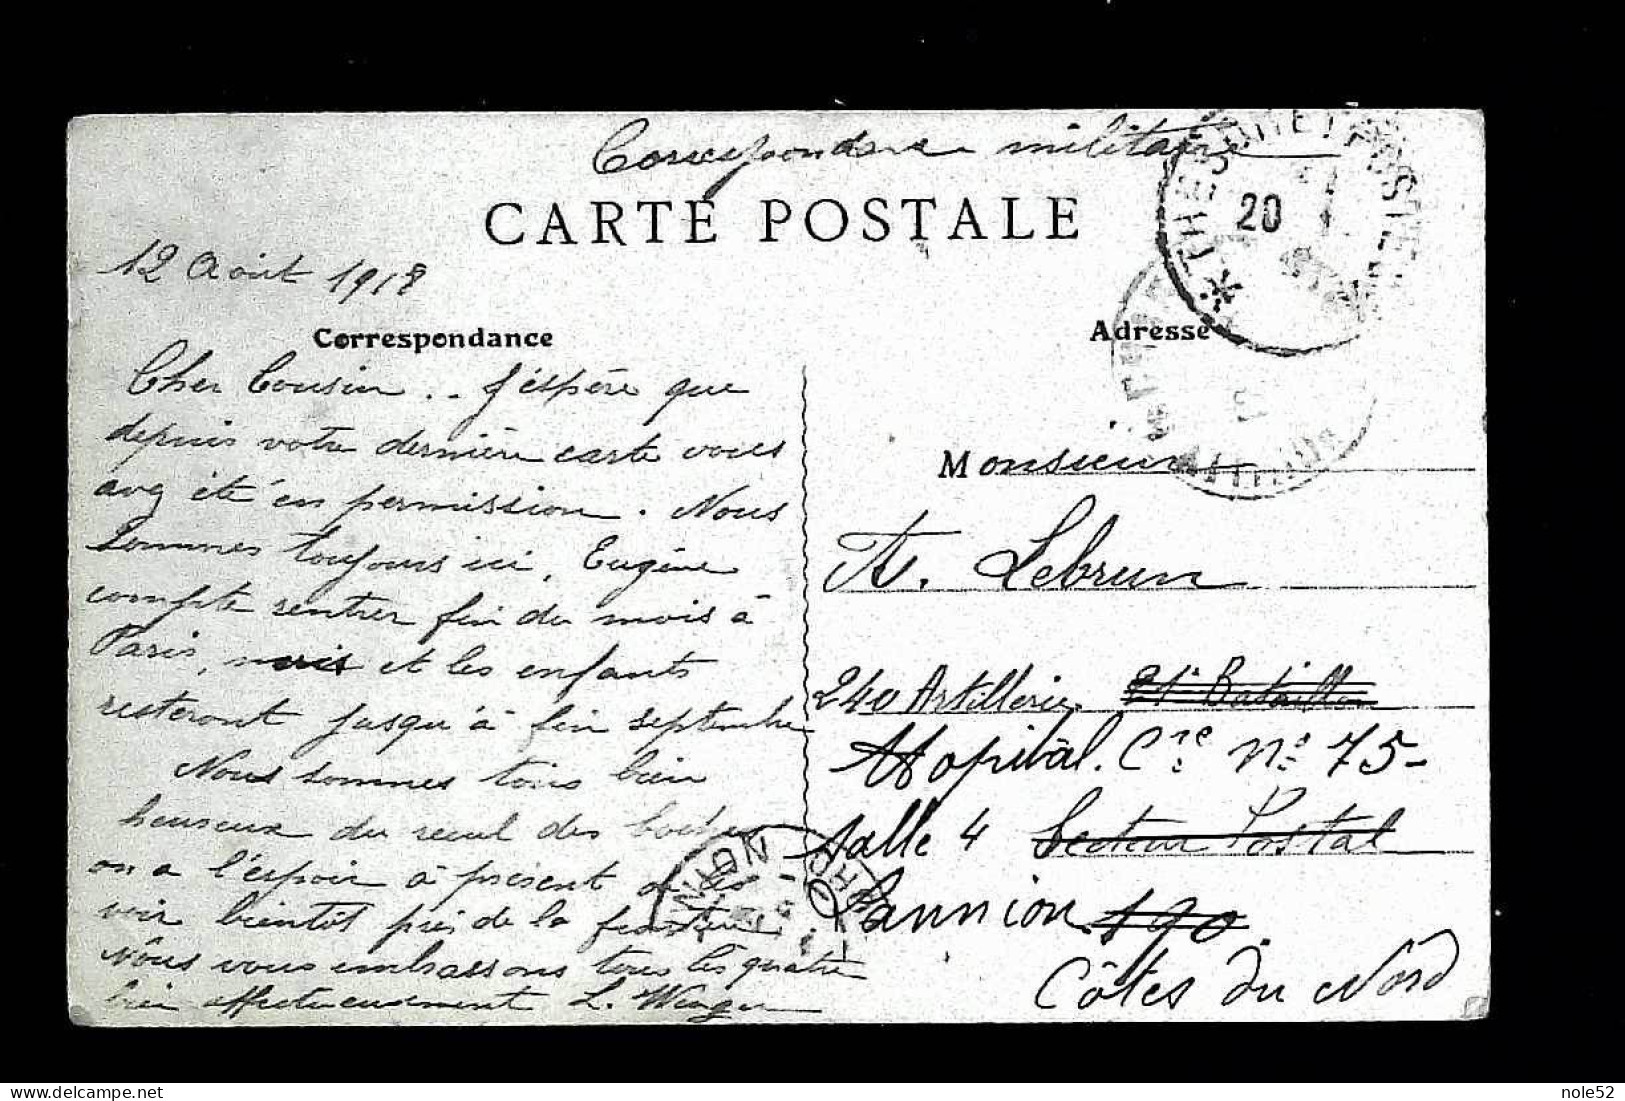 Correspondance militaire
CARTE POSTALE
12 Août 1918
Correspondance
Cher Cousin .. J'éspère que
depuis votre dernière carte vous
avez été en permission. Nous
sommes toujours ici, Eugène
compte rentrer fin du mois à
Paris, mais et les enfants
resteront jusqu'à fin septembre
Nous sommes tous bien
heureux du recul des boches
on a l'espoir à présent de les
voir bientôt près de la frontière.
Nous vous embrassons tous les quatre
bien affectueusement L. Wenger
TRESOR ET POSTES
20
Adresse
Monsieur
A. Lebrun
240 Artillerie. 21e Bataillon
Hopital. Cre No 75-
Salle 4 Secteur Postal
Lannion 190.
Côtes du Nord
LANNION
nole52